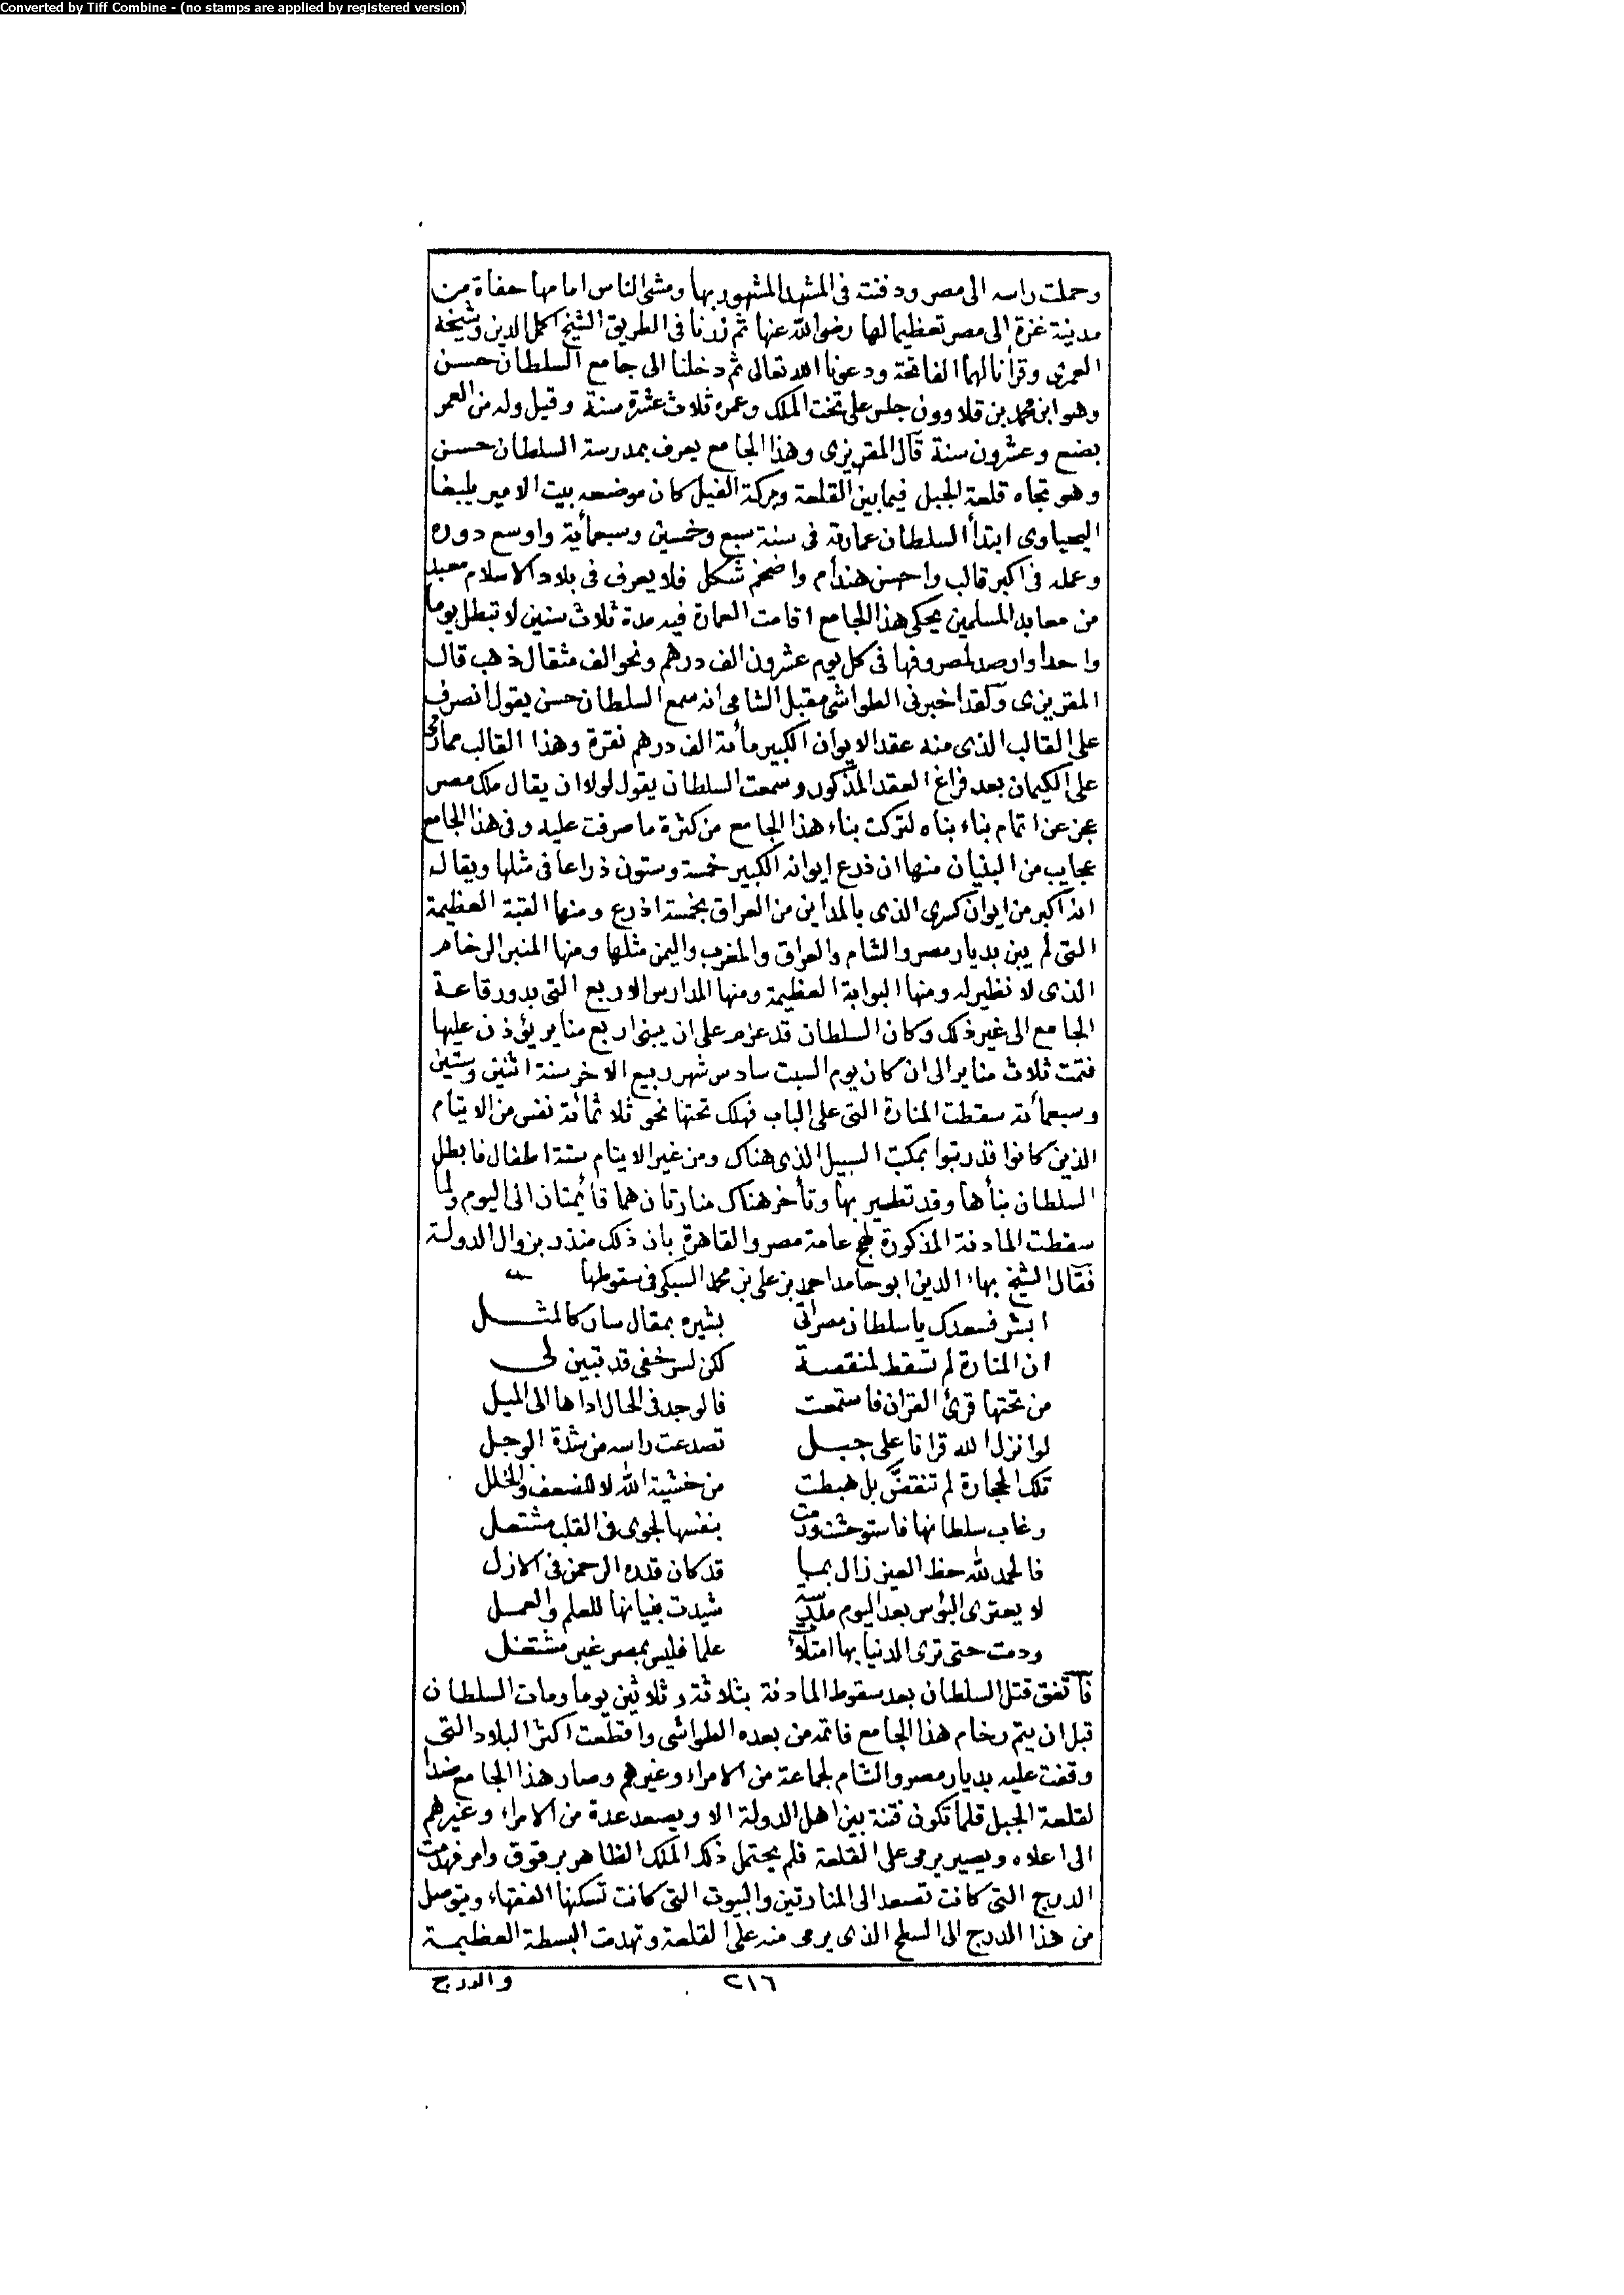 Converted by Tiff Combine - (no stamps are applied by registered version)
وحملت راسه الى مصر ودفنت فى المشهد المشهور بها ومشى الناس امامها حفاة من
مدينة غزة الى مصر تعظيما لها رضى الله عنها ثم زرنا فى الطريق الشيخ اكمل الدين وشيخه
العمرى وقرأنا لهما الفاتحة ودعونا الله تعالى ثم دخلنا الى جامع السلطان حسن
وهو ابن محمد بن قلاوون جلس على تخت الملك وعمره ثلاث عشرة سنة وقيل وله من العمر
بضع وعشرون سنة قال المقريزى وهذا الجامع يعرف بمدرسة السلطان حسن
وهو تجاه قلعة الجبل فيما بين القلعة وبركة الفيل كان موضعه بيت الامير يلبغا
اليحياوى ابتدأ السلطان عمارته فى سنة سبع وخمسين وسبعمأية واوسع دوره
وعمله فى اكبر قالب واحسن هندام واضخم شكل فلا يعرف فى بلاد الاسلام معبد
من معابد المسلمين يحكى هذا الجامع اقامت العمارة فيه مدة ثلاث سنين لا تبطل يوما
واحدا وارصد لمصروفها فى كل يوم عشرون الف درهم ونحو الف مثقال ذهب قال
المقريزى ولقد اخبرنى الطواشى مقبل الشامى انه سمع السلطان حسن يقول انصرف
على القالب الذى منه عقد الايوان الكبير مأنة الف درهم نقرة وهذا القالب مما رمى
على الكيمان بعد فراغ العقد المذكور وسمعت السلطان يقول لولا ان يقال ملك مصر
عجز عن اتمام بناء بناه لتركت بناء هذا الجامع من كثرة ما صرفت عليه وفى هذا الجامع
عجايب من البنيان منها ان ذرع ايوانه الكبير خمسة وستون ذراعا فى مثلها ويقال
انه اكبر من ايوان كسرى الذى بالمداين من العراق بخمسة اذرع ومنها القبة العظيمة
التى لم يبن بديار مصر والشام والعراق والمغرب واليمن مثلها ومنها المنبر الرخام
الذى لا نظير له ومنها البوابة العظيمة ومنها المدارس الاربع التى بدور قاعة
الجامع الى غير ذلك وكان السلطان قد عزم على ان يبنى اربع مناير يؤذن عليها
فتمت ثلاث مناير الى ان كان يوم السبت سادس شهر ربيع الاخر سنة اثنين وستين
وسبعمأنة سقطت المنارة التى على الباب فهلك تحتها نحو ثلاثمائة نفس من الايتام
الذين كانوا قد رتبوا بمكتب السبيل الذى هناك ومن غير الايتام ستة اطفال فابطل
السلطان بنأها وقد تطير بها وتأخر هناك منارتان هما قائمتان الى اليوم ولما
سقطت المادنة المذكورة لهج عامة مصر والقاهرة بان ذلك منذر بزوال الدولة
فقال الشيخ بهاء الدين ابو حامد احمد بن على بن محمد السبكى فى سقوطها
ابشر فسعدك يا سلطان مصر اتى بشيره بمقال سار كالمثل
ان المنارة لم تسقط لمنقصة لكن لسر خفى قد تبين لى
من تحتها قرئ القران فاستمعت فالوجد فى الحال اداها الى الميل
لو انزل الله قرانا على جبل تصدعت راسه من شدة الوجل
تلك الحجارة لم تنقضّ بل هبطت من خشية الله لا للضعف والخلل
وغاب سلطانها فاستوحشت ورمت بنفسها لجوى فى القلب مشتعل
فالحمد لله حظ العين زال بما قد كان قدره الرحمن فى الازل
لا يعترى البؤس بعد اليوم مدرسة شيدت بنيانها للعلم والعمل
ودمت حتى ترى الدنيا بها امتلأت علما فليس بمصر غير مشتغل
فاتفق قتل السلطان بعد سقوط المادنة بثلاثة وثلاثين يوما ومات السلطان
قبل ان يتم رخام هذا الجامع فاتمه من بعده الطواشى واقتطعت اكثر البلاد التى
وقفت عليه بديار مصر والشام لجماعة من الامراء وغيرهم وصار هذا الجامع ضدا
لقلعة الجبل قلما تكون فتنة بين اهل الدولة الا ويصعد عدة من الامراء وغيرهم
الى اعلاه ويصير يرمى على القلعة فلم يحتمل ذلك الملك الظاهر برقوق وامر فهدمت
الدرج التى كانت تصعد الى المنارتين والبيوت التى كانت تسكنها الفقهاء ويتوصل
من هذا الدرج الى السطح الذى يرمى منه على القلعة وتهدمت البسطة العظيمة
والدرج
٢١٦